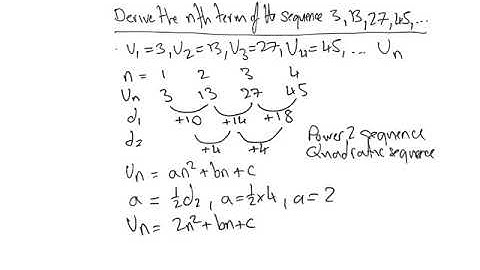 Derive the nth term of the sequence 3, 13, 27, 45, ...
U₁=3, U₂=13, U₃=27, U₄=45, ... Un
n = 1 2 3 4
Un 3 13 27 45
d₁ +10 +14 +18
d₂ +4 +4
Power 2 sequence
Quadratic sequence
Un = an²+bn+c
a = ½d₂, a=½×4, a=2
Un = 2n²+bn+c